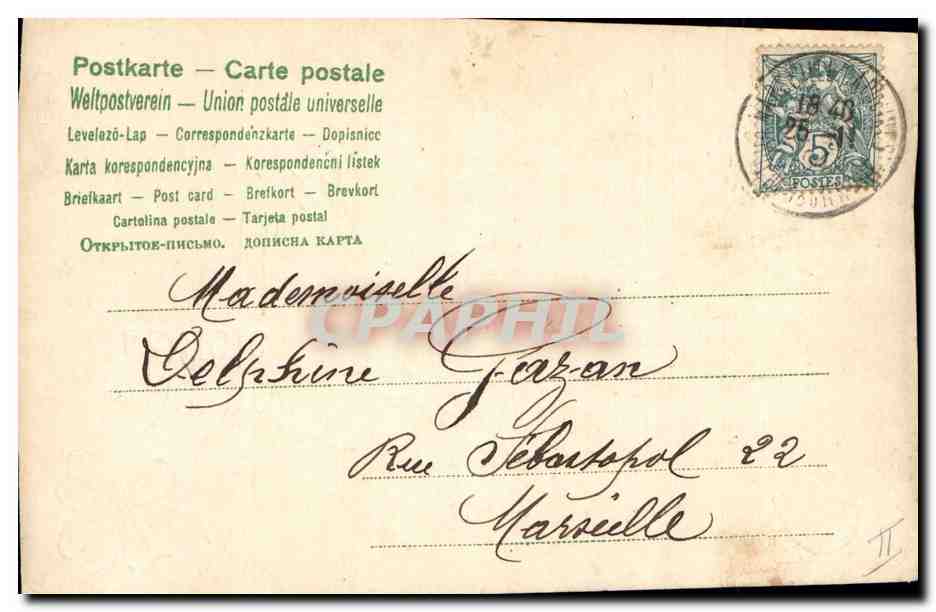 Postkarte — Carte postale
Weltpostverein — Union postale universelle
Levelező-Lap — Correspondenzkarte — Dopisnice
Karta korespondencyjna — Korespondenční lístek
Briefkaart — Post card — Brefkort — Brevkort
Cartolina postale — Tarjeta postal
Открытое-письмо. дописна карта
5c
POSTES
Mademoiselle
CPAPHIL
Delphine Gazan
Rue Sébastopol 22
Marseille
II